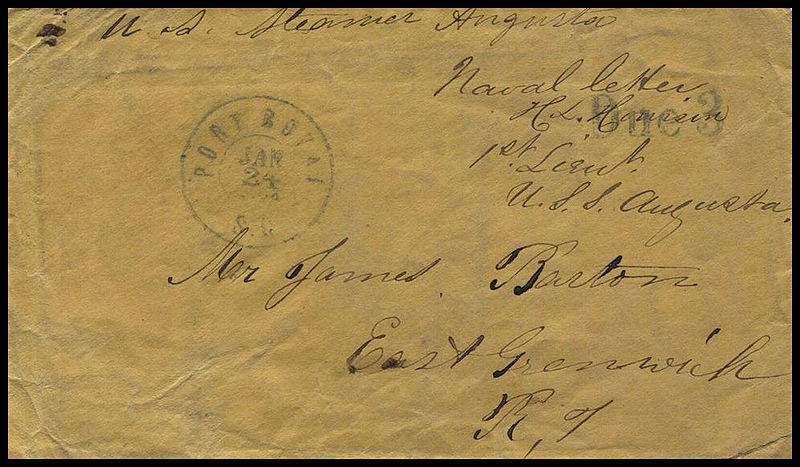 U. S. Steamer Augusta
Naval letter
Due 3
H. L.
1st. Lieut.
U. S. S. Augusta.
PORT ROYAL
JAN
24
S.C.
Mr James Barton
East Grenwich
R, I